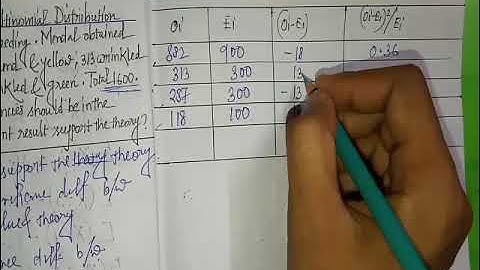 ltinomial Distribution
eeding. Mendal obtained
and & yellow, 313 wrinkled
nkled & green. Total 1600.
ncies should be in the
nt result support the theory?
support the theory theory
diff b/w
theory
nce diff b/w
Oi Ei (Oi-Ei) (Oi-Ei)²/Ei
882 900 -18 0.36
313 300 13
287 300 -13
118 100